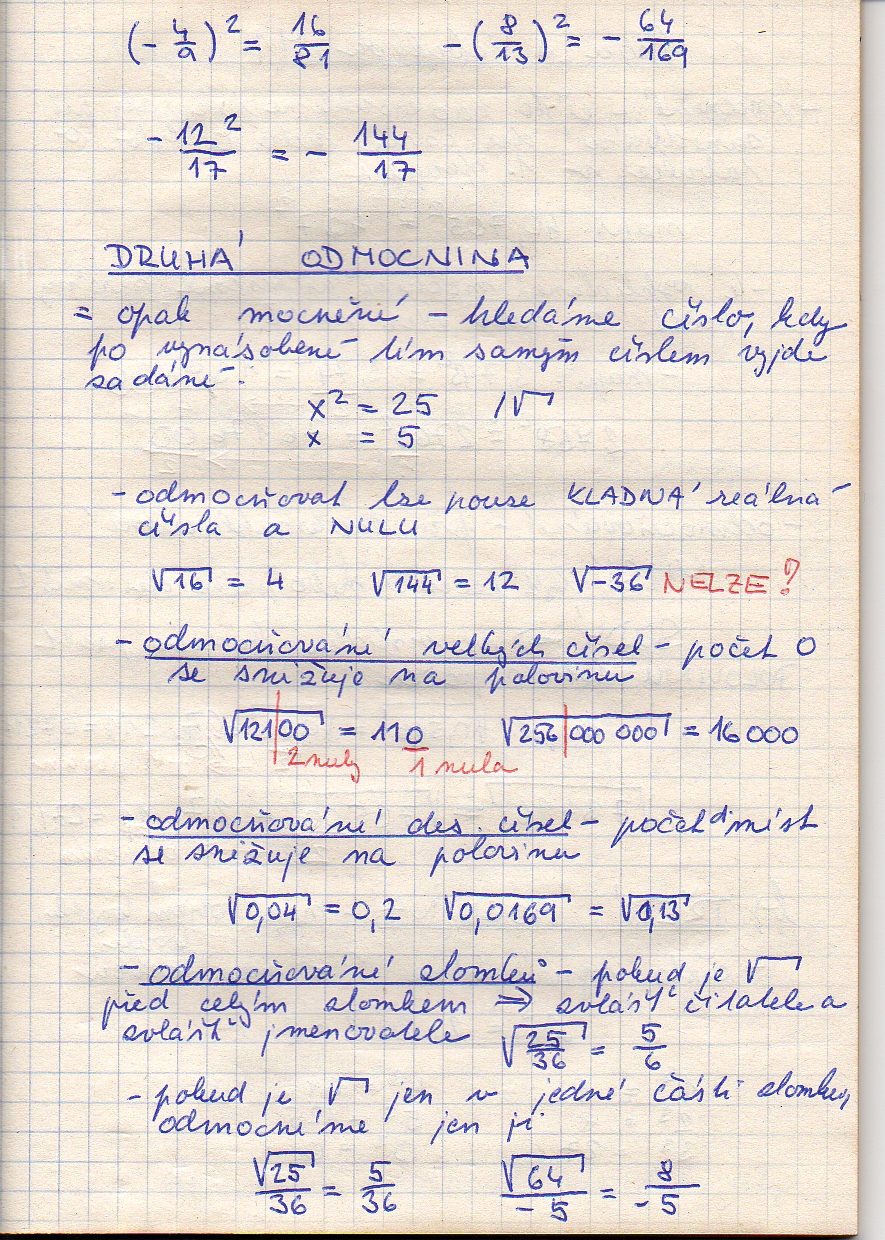 (- 4/9)² = 16/81   - (8/13)² = - 64/169
- 12²/17 = - 144/17
DRUHÁ ODMOCNINA
= opak mocnění - hledáme číslo, kdy
po vynásobení tím samým číslem vyjde
zadání:
x² = 25 /√
x = 5
- odmocňovat lze pouze KLADNÁ reálná
čísla a NULU
√16 = 4   √144 = 12   √-36 NELZE!
- odmocňování velkých čísel - počet 0
se snižuje na polovinu
√12100 = 110   √256 000 000 = 16 000
2 nuly   1 nula
- odmocňování des. čísel - počet d míst
se snižuje na polovinu
√0,04 = 0,2   √0,0169 = √0,13
- odmocňování zlomků - pokud je √
před celým zlomkem ⇒ zvlášť čitatele a
zvlášť jmenovatele √25/36 = 5/6
- pokud je √ jen v jedné části zlomku,
odmocníme jen ji
√25/36 = 5/36   √64/-5 = 8/-5